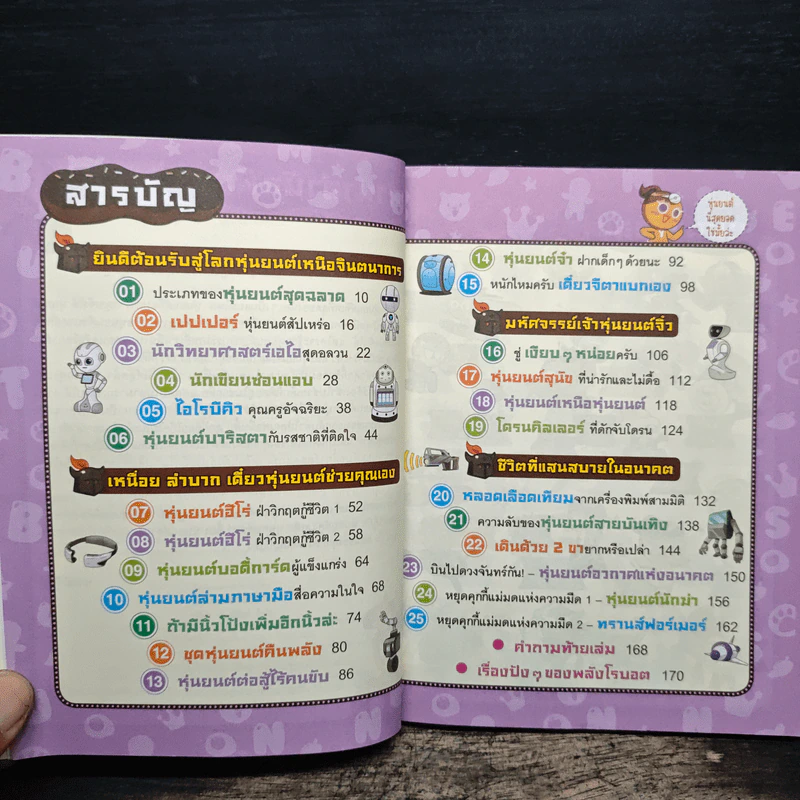 สารบัญ
ยินดีต้อนรับสู่โลกหุ่นยนต์เหนือจินตนาการ
01 ประเภทของหุ่นยนต์สุดฉลาด 10
02 เปปเปอร์ หุ่นยนต์สัปเหร่อ 16
03 นักวิทยาศาสตร์เอไอสุดอลวน 22
04 นักเขียนซ่อนแอบ 28
05 ไอโรบิคิว คุณครูอัจฉริยะ 38
06 หุ่นยนต์บาริสตากับรสชาติที่ติดใจ 44
เหนื่อย ลำบาก เดี๋ยวหุ่นยนต์ช่วยคุณเอง
07 หุ่นยนต์ฮีโร่ ฝ่าวิกฤตกู้ชีวิต 1 52
08 หุ่นยนต์ฮีโร่ ฝ่าวิกฤตกู้ชีวิต 2 58
09 หุ่นยนต์บอดี้การ์ดผู้แข็งแกร่ง 64
10 หุ่นยนต์ล่ามภาษามือสื่อความในใจ 68
11 ถ้ามีนิ้วโป้งเพิ่มอีกนิ้วล่ะ 74
12 ชุดหุ่นยนต์คืนพลัง 80
13 หุ่นยนต์ต่อสู้ไร้คนขับ 86
หุ่นยนต์
นี่สุดยอด
ใช่มั้ยล่ะ
14 หุ่นยนต์จ๋า ฝากเด็กๆ ด้วยนะ 92
15 หนักไหมครับ เดี๋ยวจีตาแบกเอง 98
มหัศจรรย์เจ้าหุ่นยนต์จิ๋ว
16 ชู่ เงียบๆ หน่อยครับ 106
17 หุ่นยนต์สุนัข ที่น่ารักและไม่ดื้อ 112
18 หุ่นยนต์เหนือหุ่นยนต์ 118
19 โดรนคิลเลอร์ ที่ดักจับโดรน 124
ชีวิตที่แสนสบายในอนาคต
20 หลอดเลือดเทียมจากเครื่องพิมพ์สามมิติ 132
21 ความลับของหุ่นยนต์สายบันเทิง 138
22 เดินด้วย 2 ขายากหรือเปล่า 144
23 บินไปดวงจันทร์กัน! – หุ่นยนต์อวกาศแห่งอนาคต 150
24 หยุดคุกกี้แม่มดแห่งความมืด 1 – หุ่นยนต์นักฆ่า 156
25 หยุดคุกกี้แม่มดแห่งความมืด 2 – ทรานส์ฟอร์เมอร์ 162
คำถามท้ายเล่ม 168
เรื่องปังๆ ของพลังโรบอต 170